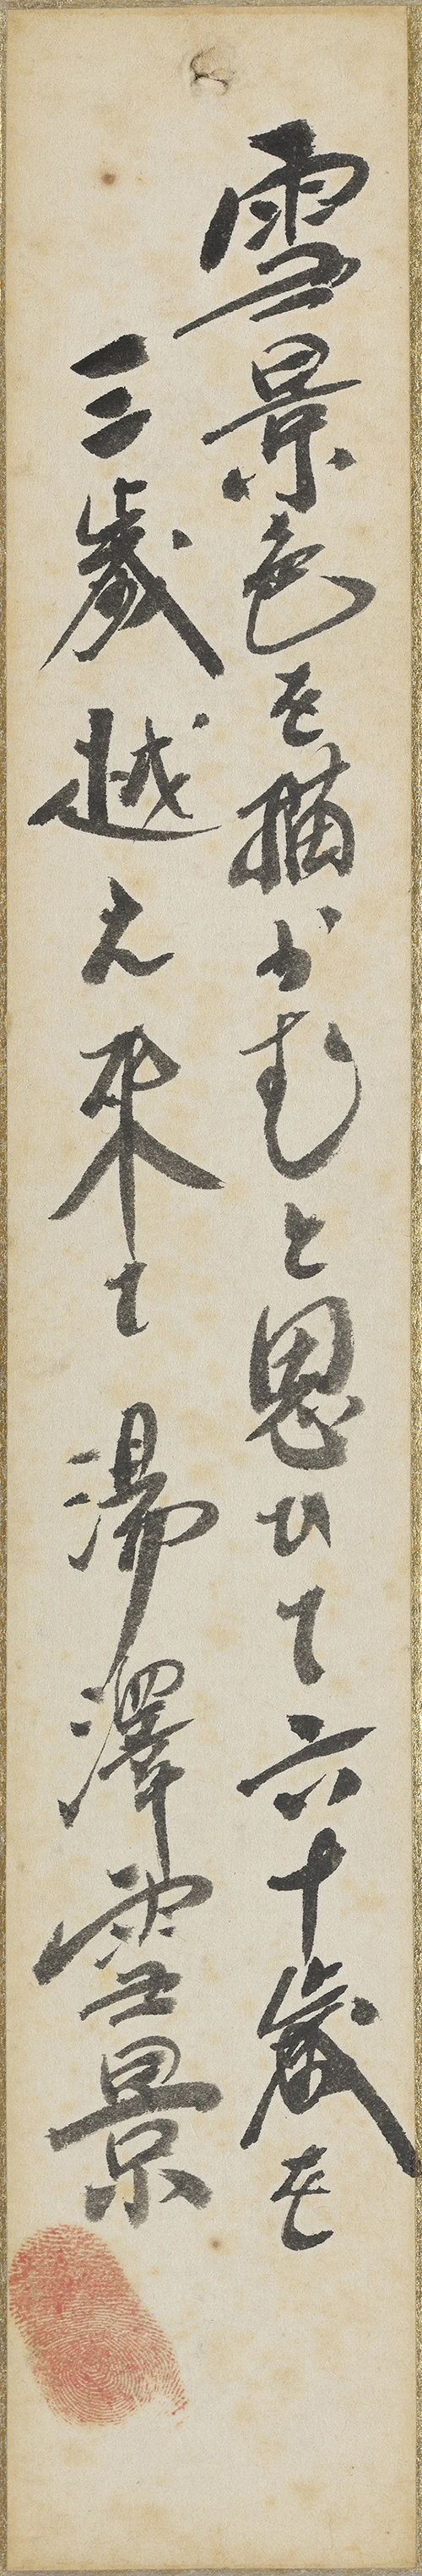 雪景色を描かむと思ひて六十歳を
三歳越え来て湯澤雪景